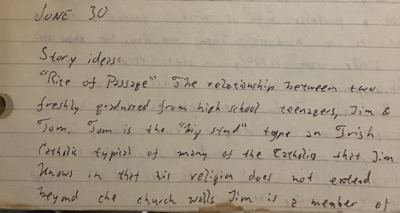 JUNE 30
Story ideas:
"Rite of Passage" The relationship between two
freshly graduated from high school teenagers, Jim &
Tom. Tom is the "big stud" type an Irish
Catholic typical of many of the Catholics that Jim
knows in that his religion does not extend
beyond the church walls Jim is a member of